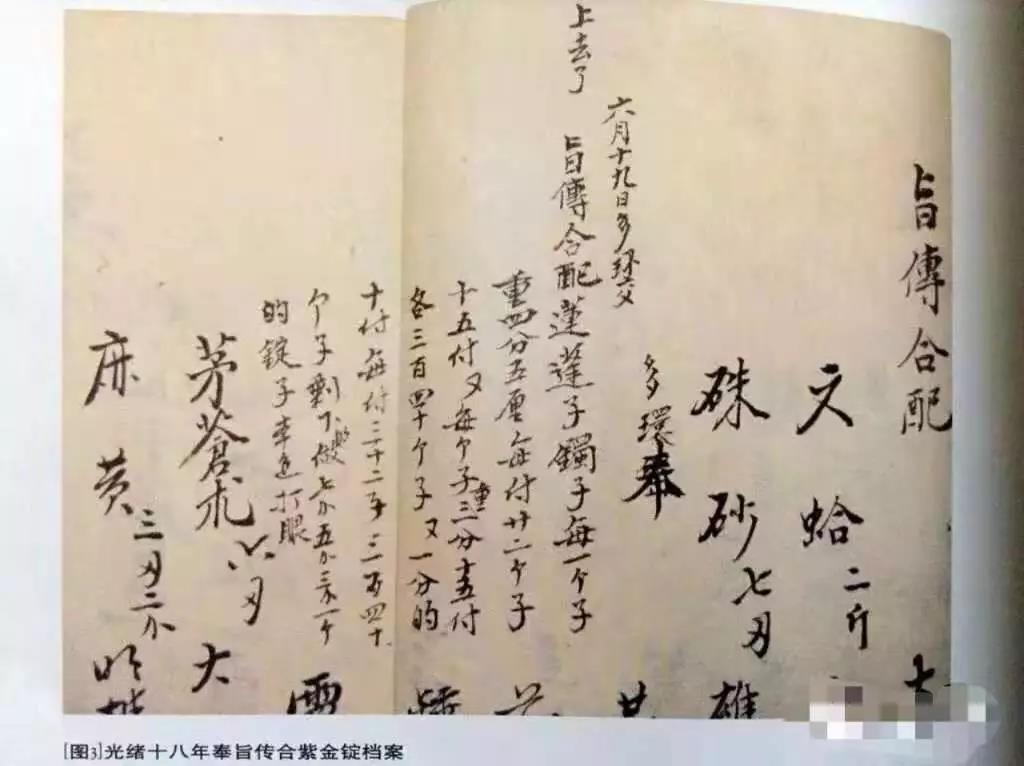 旨傳合配
文蛤二斤
硃砂七刄
雄
多環奉
六月十九日多
上去了
旨傳合配蓮蓬子鐲子每一个子
重四分五厘每付廿二个子
十五付又每个子重三分十五付
各三百四十个子又一分的
十付每付三十二子三百四十
个子剩下
的錠子
打眼
茅蒼朮六刄
大
麻黄三刄二
[图3]光绪十八年奉旨传合紫金锭档案